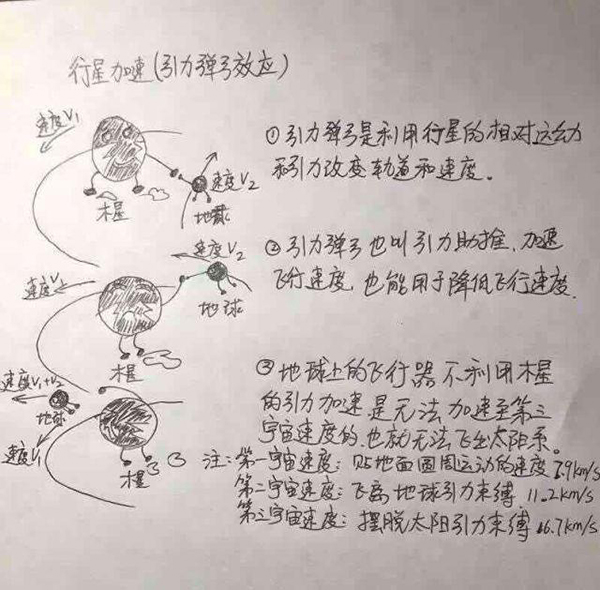 行星加速(引力弹弓效应)
速度V₁
速度V₂
木星
地球
①引力弹弓是利用行星的相对运动
和引力改变轨道和速度。
速度V₂
速度V₁
地球
木星
②引力弹弓也叫引力助推,加速
飞行速度,也能用于降低飞行速度.
速度V₁+V₂
地球
速度V₁
木星
③地球上的飞行器不利用木星
的引力加速是无法加速至第三
宇宙速度的,也就无法飞出太阳系。
注:第一宇宙速度:贴地面圆周运动的速度 7.9km/s
第二宇宙速度:飞离地球引力束缚 11.2km/s
第三宇宙速度:摆脱太阳引力束缚 16.7km/s